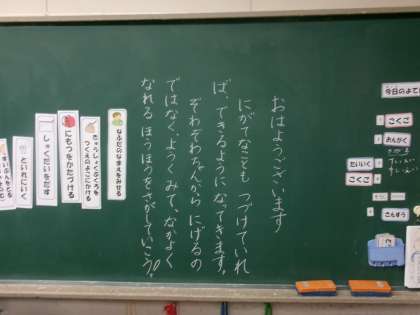 今日のよてい
こくご
おんがく
たいいく
こくご
さんすう
おはようございます
にがてなことも つづけていれ
ば、できるようになってきます。
ぞわぞわたんから にげるの
ではなく、ようくみて、なかよく
なれる ほうほうをさがしていこう!
なふだのなまえをみせる
きゅうしょくぶくろを
つくえのよこにかける
にもつをかたづける
しゅくだいをだす
といれにいく